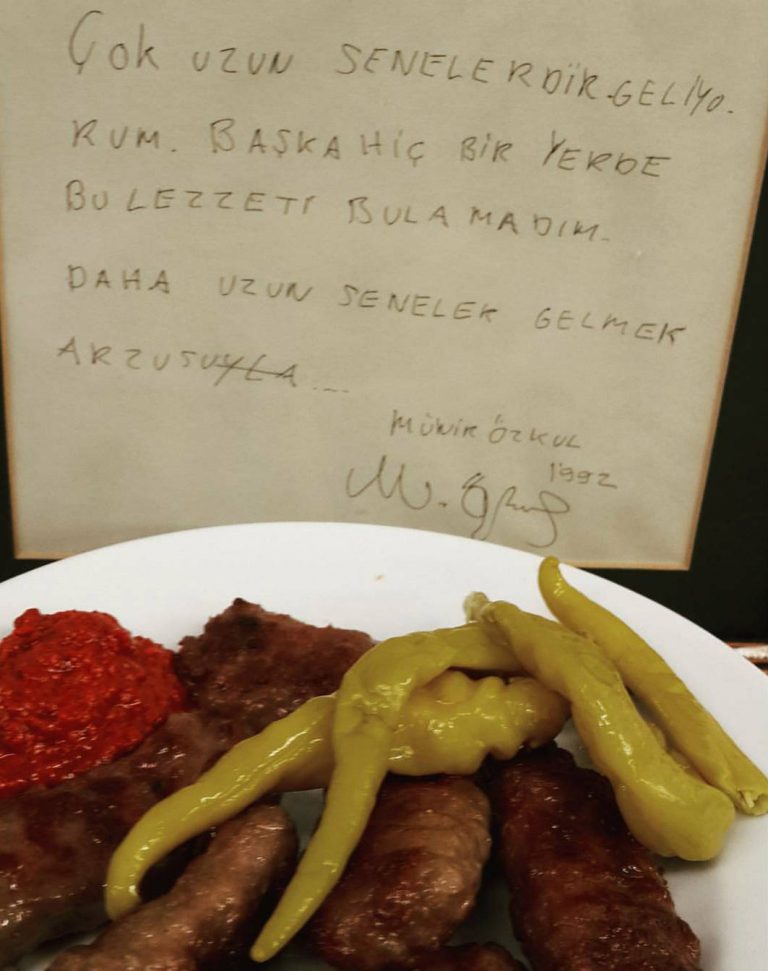 Çok UZUN SENELERDİR GELİYO-
RUM. BAŞKA HİÇ BİR YERDE
BU LEZZETİ BULAMADIM.
DAHA UZUN SENELER GELMEK
ARZUSUYLA ....
MÜNİR ÖZKUL
1992
M. Özkul